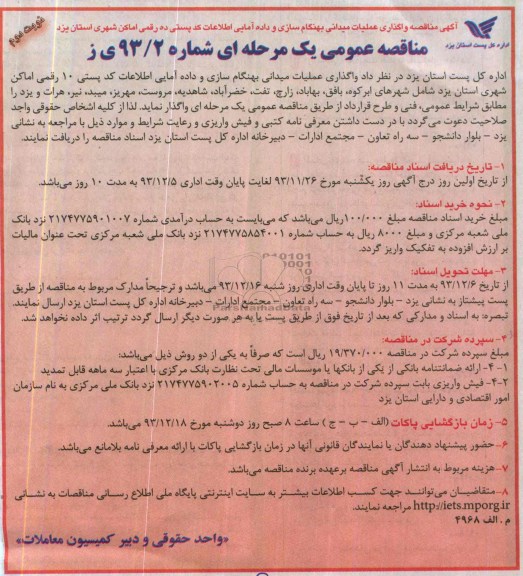 نوبت دوم
آگهی مناقصه واگذاری عملیات میدانی بهنگام سازی و داده آمایی اطلاعات کد پستی ده رقمی اماکن شهری استان یزد
اداره کل پست استان یزد
مناقصه عمومی یک مرحله ای شماره ۹۳/۲ی ز
اداره کل پست استان یزد در نظر داد واگذاری عملیات میدانی بهنگام سازی و داده آمایی اطلاعات کد پستی ۱۰ رقمی اماکن
شهری استان یزد شامل شهرهای ابرکوه، بافق، بهاباد، زارچ، تفت، خضرآباد، شاهدیه، مروست، مهریز، میبد، نیر، هرات و یزد را
مطابق شرایط عمومی، فنی و طرح قرارداد از طریق مناقصه عمومی یک مرحله ای واگذار نماید. لذا از کلیه اشخاص حقوقی واجد
صلاحیت دعوت می‌گردد با در دست داشتن معرفی نامه کتبی و فیش واریزی و رعایت شرایط و موارد ذیل با مراجعه به نشانی
یزد - بلوار دانشجو - سه راه تعاون - مجتمع ادارات - دبیرخانه اداره کل پست استان یزد اسناد مناقصه را دریافت نمایند.
۱- تاریخ دریافت اسناد مناقصه:
از تاریخ اولین روز درج آگهی روز یکشنبه مورخ ۹۳/۱۱/۲۶ لغایت پایان وقت اداری ۹۳/۱۲/۵ به مدت ۱۰ روز می‌باشد.
۲- نحوه خرید اسناد:
مبلغ خرید اسناد مناقصه مبلغ ۱۰۰/۰۰۰ریال می‌باشد که می‌بایست به حساب درآمدی شماره ۲۱۷۴۷۷۵۹۰۱۰۰۷ نزد بانک
ملی شعبه مرکزی و مبلغ ۸۰۰۰ ریال به حساب شماره ۲۱۷۴۷۷۵۸۵۴۰۰۱ نزد بانک ملی شعبه مرکزی تحت عنوان مالیات
بر ارزش افزوده به تفکیک واریز گردد.
۳- مهلت تحویل اسناد:
از تاریخ ۹۳/۱۲/۶ به مدت ۱۱ روز تا پایان وقت اداری روز شنبه ۹۳/۱۲/۱۶ می‌باشد و ترجیحاً مدارک مربوط به مناقصه از طریق
پست پیشتاز به نشانی یزد - بلوار دانشجو - سه راه تعاون - مجتمع ادارات - دبیرخانه اداره کل پست استان یزد ارسال نمایند.
تبصره: به اسناد و مدارکی که بعد از تاریخ فوق از طریق پست یا به هر صورت دیگر ارسال گردد ترتیب اثر داده نخواهد شد.
۴- سپرده شرکت در مناقصه:
مبلغ سپرده شرکت در مناقصه ۱۹/۳۷۰/۰۰۰ ریال است که صرفاً به یکی از دو روش ذیل می‌باشد:
۴-۱- ارائه ضمانتنامه بانکی از یکی از بانکها یا موسسات مالی تحت نظارت بانک مرکزی با اعتبار سه ماهه قابل تمدید
۴-۲- فیش واریزی بابت سپرده شرکت در مناقصه به حساب شماره ۲۱۷۴۷۷۵۹۰۲۰۰۵ نزد بانک ملی مرکزی به نام سازمان
امور اقتصادی و دارایی استان یزد
۵- زمان بازگشایی پاکات (الف - ب - ج) ساعت ۸ صبح روز دوشنبه مورخ ۹۳/۱۲/۱۸ می‌باشد.
۶- حضور پیشنهاد دهندگان یا نمایندگان قانونی آنها در زمان بازگشایی پاکات با ارائه معرفی نامه بلامانع می‌باشد.
۷- هزینه مربوط به انتشار آگهی مناقصه برعهده برنده مناقصه می‌باشد.
۸- متقاضیان می‌توانند جهت کسب اطلاعات بیشتر به سایت اینترنتی پایگاه ملی اطلاع رسانی مناقصات به نشانی
http://iets.mporg.ir مراجعه نمایند.
م . الف ۴۹۶۸
«واحد حقوقی و دبیر کمیسیون معاملات»